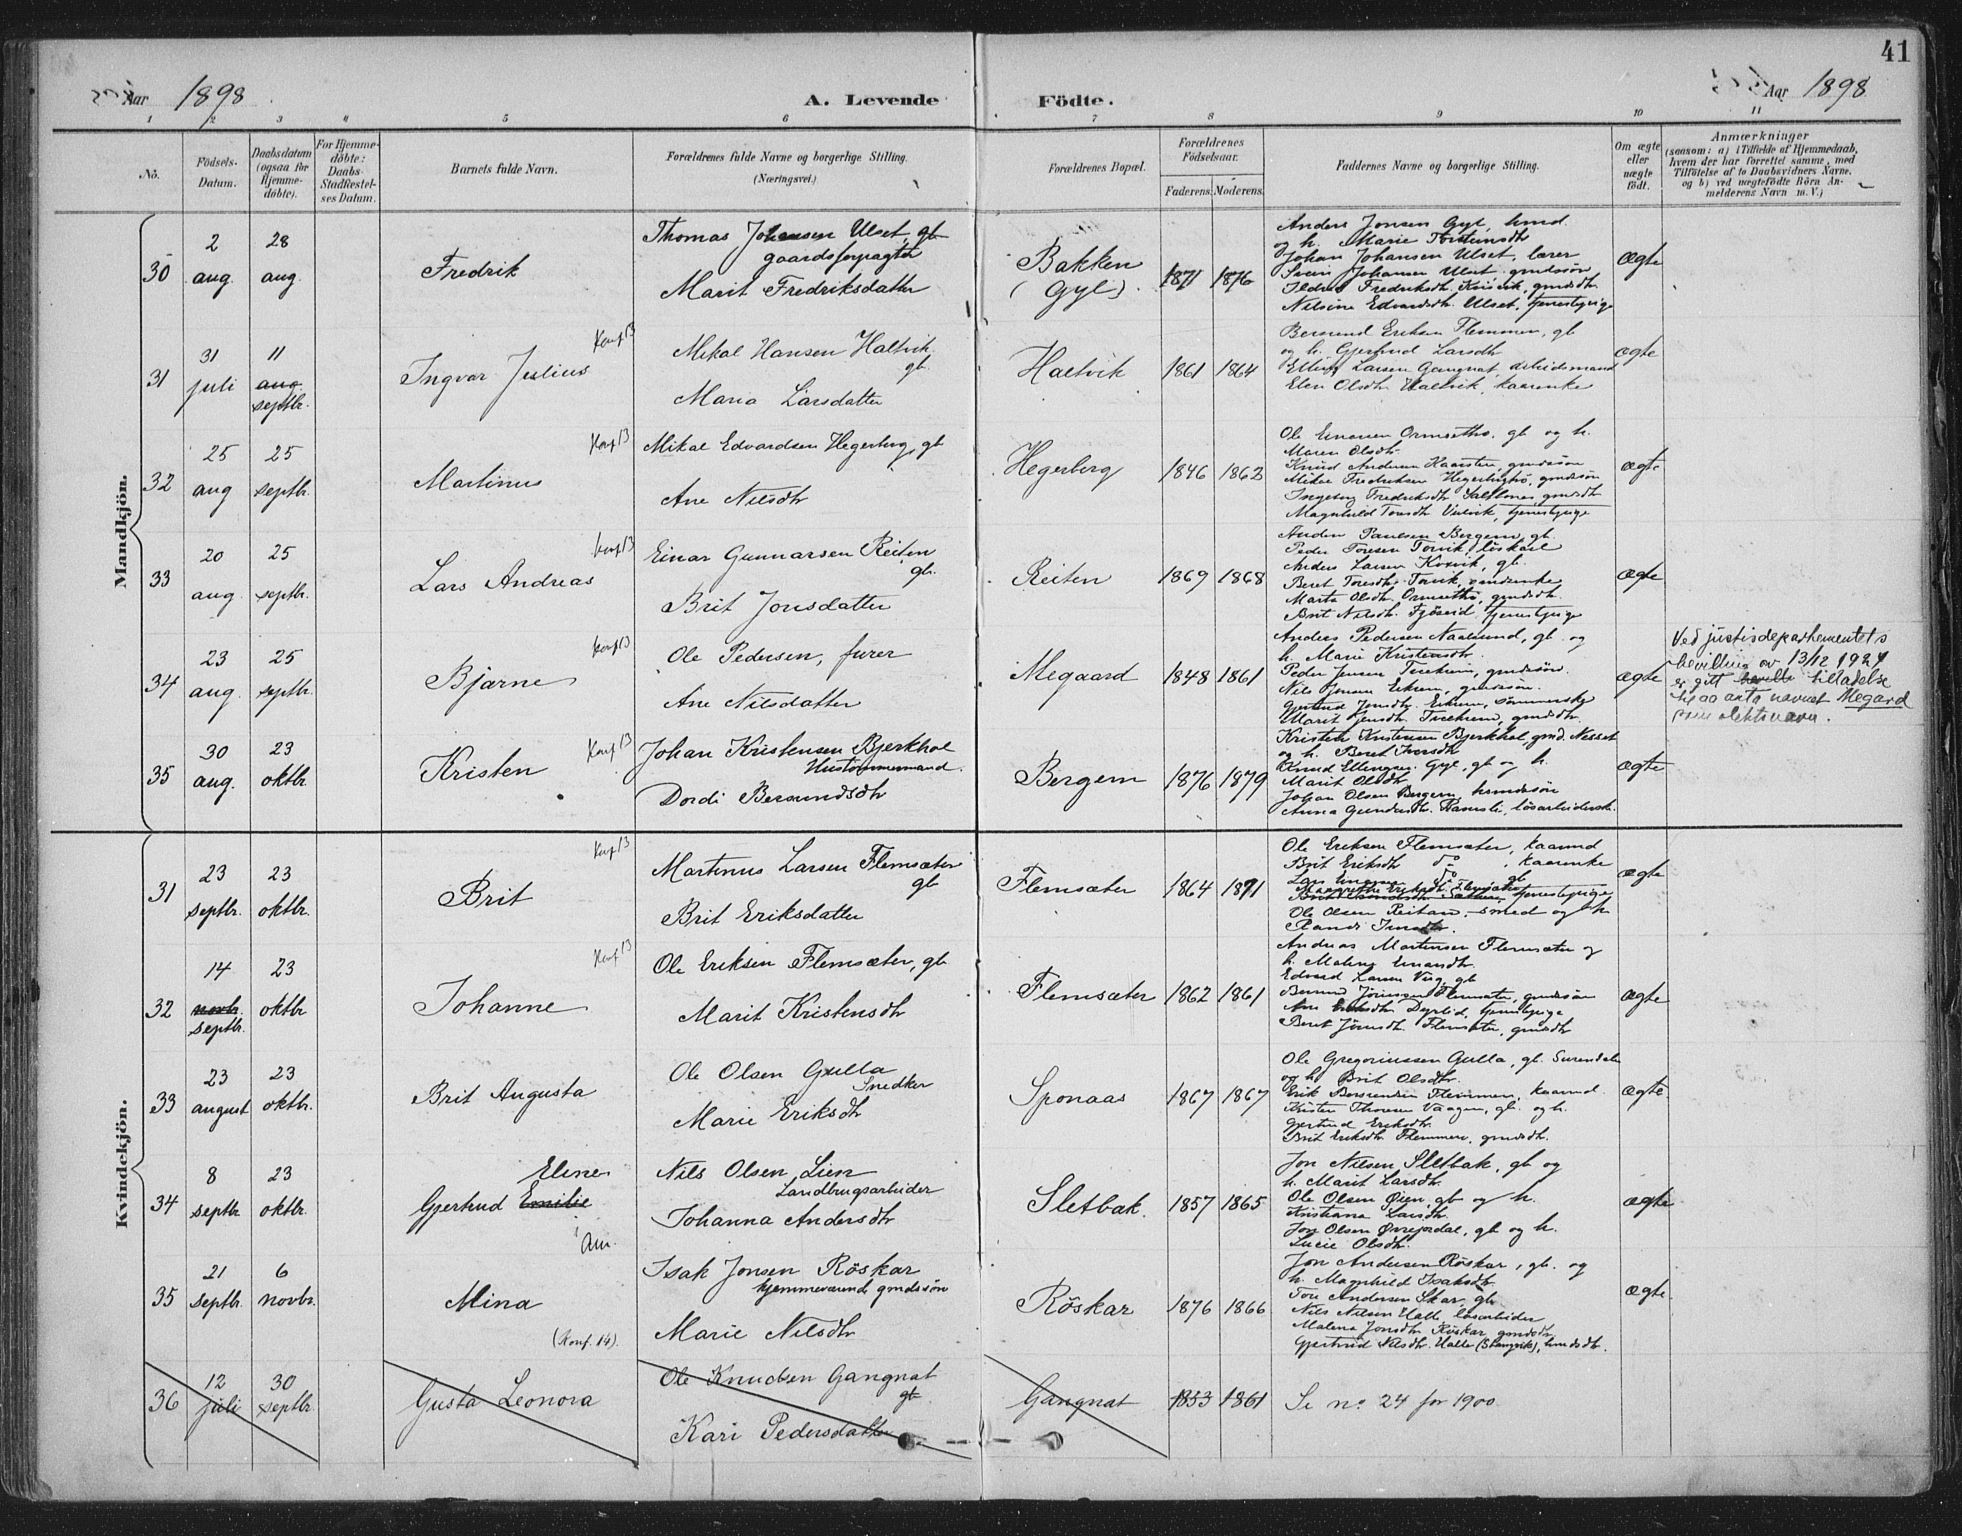 41
Aar 1898
A. Levende
Födte.
Aar 1898
1 2 3 4 5 6 7 8 9 10 11
No.
Födsels-Datum.
Daabsdatum (ogsaa for Hjemme-döbte).
For Hjemme-döbte: Daabs-Stadfæstel-ses Datum.
Barnets fulde Navn.
Forældrenes fulde Navne og borgerlige Stilling.
(Næringsvei.)
Forældrenes Bopæl.
Forældrenes Födselsaar.
Faderens. Moderens.
Faddernes Navne og borgerlige Stilling.
Om ægte eller uægte födt.
Anmærkninger
(saasom: a) i Tilfælde af Hjemmedaab,
hvem der har forrettet samme, med
Tilföielse af to Daabsvidners Navne,
og b) ved uægtefödte Börn An-
melderens Navn m. V.)
Mandkjön.
30
2 aug.
28 aug.
Fredrik
Thomas Johansen Ulset, gb
gaardsforpagter
Marit Fredriksdatter
Bakken
(Gyl).
1871 1876
Anders Jonsen Gyl, hmd.
og h. Marie Torsteinsdtr
Johan Johansen Ulset, lærer
Svein Johansen Ulset, gmdssön
Fredriksdtr. Krisvik, gmdsdtr.
Nilsine Edvardsdtr. Ulset, tjenestepige
ægte
31
31 juli
11 aug. septbr.
Ingvar Julius
Konf 13
Mikal Hansen Haltvik
gb.
Maria Larsdatter
Haltvik
1861 1864
Bersvend Eriksen Flemmen, gb
og h. Gjertrud Larsdtr
Elling Larsen Gangnat, arbeidsmand
Elen Olsdtr Haltvik, kaarenke
ægte
32
25 aug
25 septbr.
Martinus
Konf 13
Mikal Edvardsen Hegerberg, gb
Ane Nilsdtr
Hegerberg
1846 1862
Ole Einarsen Ormsetho. gb og h.
Maren Olsdtr
Knud Andersen Haarsten, gmdssön
Fredriksen gmdssön
Ingeborg Fredriksdtr gmdsdtr
Magnhild Toresdtr tjenestepige
ægte
33
20 aug.
25 septbr.
Lars Andreas
Konf 13
Einar Gunnarsen Reiten
gb.
Brit Jonsdatter
Reiten
1869 1868
Anders Paulsen Bergem, gb.
Peder Toresen Torvik, löskarl
Anders Larsen gb.
Beret Toresdtr. Torvik,
Marta Olsdtr. Ormsetho, gmdsdtr.
Brit Nilsdtr. Fjöseid, tjenestepige
ægte
34
23 aug.
25 septbr.
Bjarne
Konf 13
Ole Pedersen, furer
Ane Nilsdatter
Megaard
1848 1861
Anders Pedersen Naalsund, gb. og
h. Marie Kristensdtr.
Peder Jensen gmdssön.
Nils Jonsen gmdssön.
Gjertrud Jonsdtr.
Marit Jensdtr. gmdsdtr.
ægte
Ved justisdepartementets
bevilling av 13/12 1927
er gitt tilladelse
til aa anta navnet Megard
som slektsnavn.
35
30 aug.
23 oktbr.
Kristen
Konf 13
Johan Kristensen Bjerkhol
Hustömmermand.
Dordi Bersvendsdtr
Bergem
1876 1879
Kristen Kristensen Bjerkhol, gmd. Nesset
og h. Beret Iversdtr
Knud Ellingsen Gyl, gb og h.
Marit Olsdtr
Johan Olsen Bergem, hmdssön
Anna Gundersdtr. lösarbeiderske.
ægte
Kvindekjön.
31
23 septbr.
23 oktbr.
Brit
Konf 13
Martinus Larsen Flemsæter
gb
Brit Eriksdatter
Flemsæter
1864 1871
Ole Eriksen Flemsæter, kaarmd
Brit Eriksdtr do, kaarenke
Lars Einarsen do gb
Eriksdtr. Flemsæter
tjenestepige
Ole Olsen Reitan, smed og h
Randi
ægte
32
14 novbr. septbr.
23 oktbr
Johanne
Konf 13
Ole Eriksen Flemsæter, gb.
Marit Kristensdtr
Flemsæter
1862 1861
Andreas Martinsen Flemsæter og
h. Malene Einarsdtr.
Edvard Larsen gb
Flemsæter, gmdssön
Ane tjenestepige
Beret Flemsæter, gmdsdtr
ægte
33
23 august
23 oktbr.
Brit Augusta
Ole Olsen Gulla
Snedker
Marie Eriksdtr
Sponaas
1867 1867
Ole Gregoriussen Gulla, gb. Surendalen
og h. Brit Olsdtr.
Erik Bersvendsen Flemmen, kaarmd.
Kristen Thoresen Vaagen, gb. og h.
Gjertrud Eriksdtr.
Brit Eriksdtr. Flemmen, gmdsdtr.
ægte
34
8 septbr
23 oktbr.
Eline
Gjertrud Emilie
Am.
Nils Olsen Lien
Landbrugsarbeider
Johanna Andersdtr
Sletbak.
1857 1865
Jon Nilsen Sletbak, gb og
h. Marit Larsdtr.
Ole Olsen Øien, gb og h.
Kristiana Larsdtr.
Jon Olsen gb og h.
Lucie Olsdtr.
ægte
35
21 septbr.
6 novbr.
Mina
(Konf. 14).
Isak Jonsen Röskar
hjemmeværende gmdssön
Marie Nilsdtr
Röskar
1876 1866
Jon Andersen Röskar, gb. og
h. Magnhild Isaksdtr.
Tore Andersen Skar, gb
Nils Nilsen Halle lösarbeider
Malena Jonsdtr Röskar, gmdsdtr.
Gjertrud Nilsdtr. Halle (Stangvik), hmdsdtr.
ægte
36
12 juli
30 septbr.
Gusta Leonora
Ole Knudsen Gangnat
gb
Kari Pedersdatter
Gangnat
1853 1861
Se no 24 for 1900.